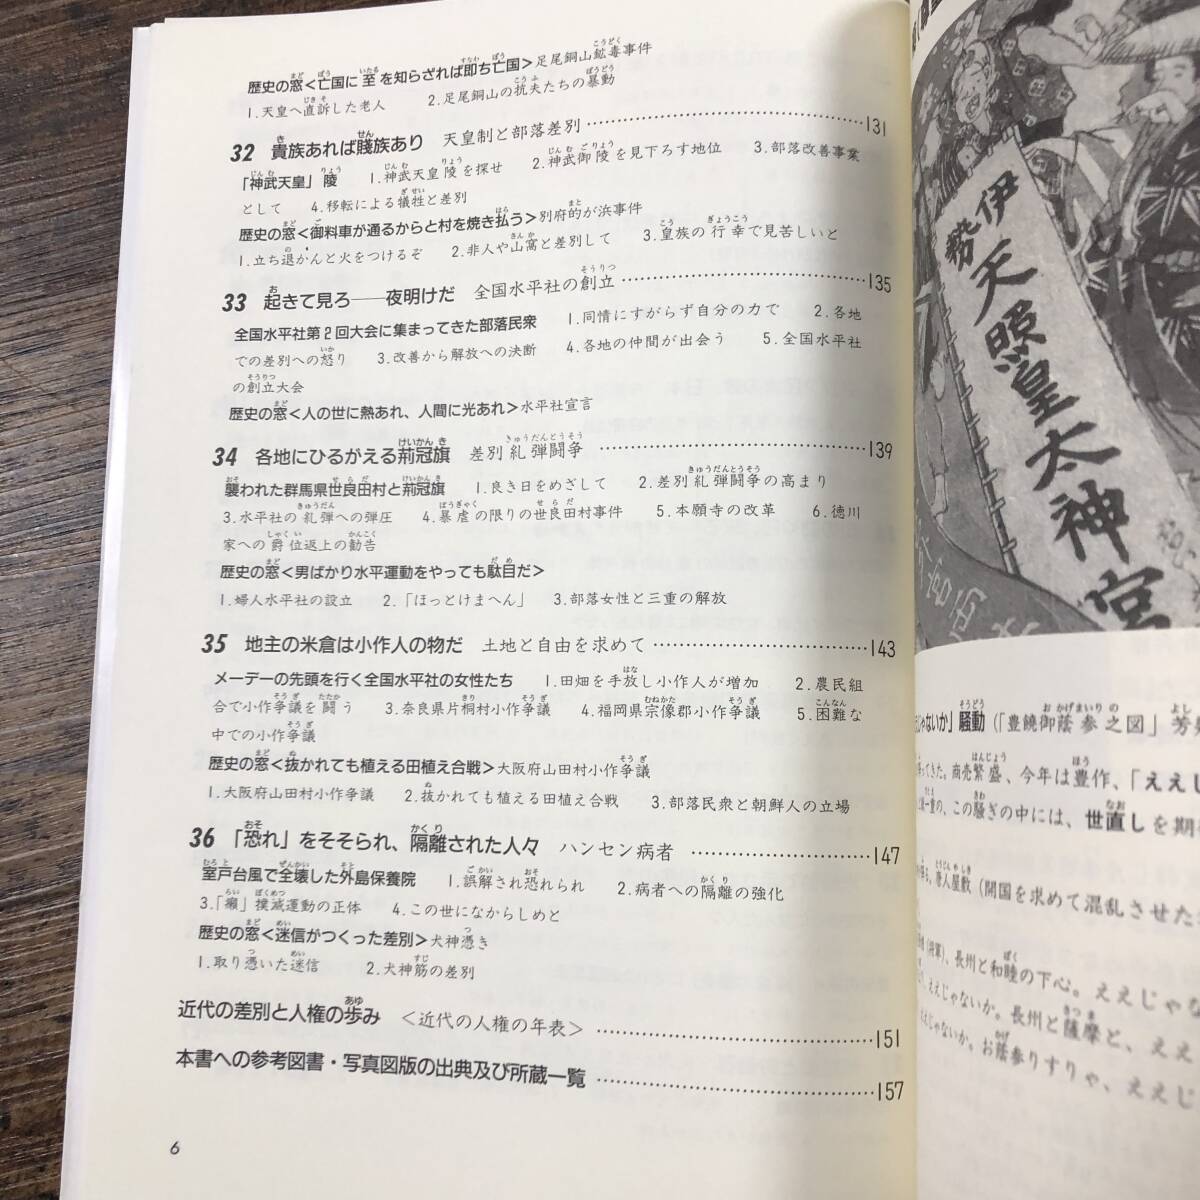 歴史の窓<亡国に至を知らざれば即ち亡国>足尾銅山鉱毒事件
1.天皇へ直訴した老人 2.足尾銅山の抗夫たちの暴動
32 貴族あれば賤族あり 天皇制と部落差別 131
「神武天皇」陵 1.神武天皇陵を探せ 2.神武御陵を見下ろす地位 3.部落改善事業
として 4.移転による犠牲と差別
歴史の窓<御料車が通るからと村を焼き払う>別府的が浜事件
1.立ち退かんと火をつけるぞ 2.非人や山窩と差別して 3.皇族の行幸で見苦しいと
33 起きて見ろ──夜明けだ 全国水平社の創立 135
全国水平社第2回大会に集まってきた部落民衆 1.同情にすがらず自分の力で 2.各地
での差別への怒り 3.改善から解放への決断 4.各地の仲間が出会う 5.全国水平社
の創立大会
歴史の窓<人の世に熱あれ、人間に光あれ>水平社宣言
34 各地にひるがえる荊冠旗 差別糺弾闘争 139
襲われた群馬県世良田村と荊冠旗 1.良き日をめざして 2.差別糺弾闘争の高まり
3.水平社の糺弾への弾圧 4.暴虐の限りの世良田村事件 5.本願寺の改革 6.徳川
家への爵位返上の勧告
歴史の窓<男ばかり水平運動をやっても駄目だ>
1.婦人水平社の設立 2.「ほっとけまへん」 3.部落女性と三重の解放
35 地主の米倉は小作人の物だ 土地と自由を求めて 143
メーデーの先頭を行く全国水平社の女性たち 1.田畑を手放し小作人が増加 2.農民組
合で小作争議を闘う 3.奈良県片桐村小作争議 4.福岡県宗像郡小作争議 5.困難な
中での小作争議
歴史の窓<抜かれても植える田植え合戦>大阪府山田村小作争議
1.大阪府山田村小作争議 2.抜かれても植える田植え合戦 3.部落民衆と朝鮮人の立場
36 「恐れ」をそそられ、隔離された人々 ハンセン病者 147
室戸台風で全壊した外島保養院 1.誤解され恐れられ 2.病者への隔離の強化
3.「癩」撲滅運動の正体 4.この世になからしめと
歴史の窓<迷信がつくった差別>犬神憑き
1.取り憑いた迷信 2.犬神筋の差別
近代の差別と人権の歩み <近代の人権の年表> 151
本書への参考図書・写真図版の出典及び所蔵一覧 157
6
伊勢
天照皇太神宮
じゃないか」騒動(「豊饒御蔭参之図」芳
ってきた。商売繁盛、今年は豊作、「ええし
の、この騒ぎの中には、世直しを期
唐人屋敷(開国を求めて混乱させた
(将軍)、長州と和睦の下心。ええじゃな
、ええじゃないか。長州と薩摩と、ええ
えじゃないか。お蔭参りすりゃ、ええじ